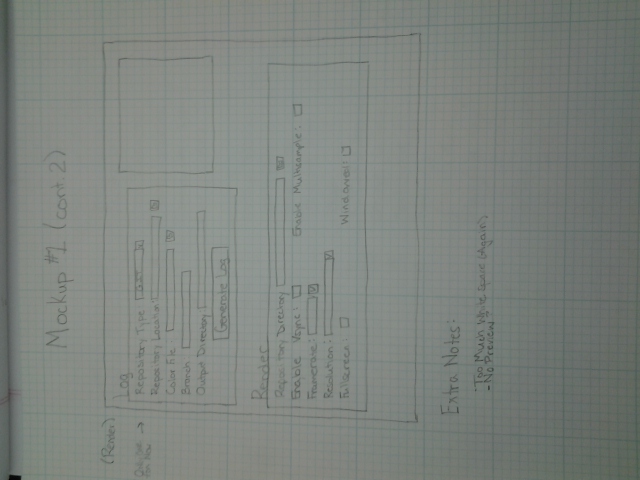 Mockup #1 (cont. 2)
(Render)
Log
Repository Type:
Repository Location:
Color File:
Branch
Output Directory
Generate Log
Render
Repository Directory
Enable Vsync: Enable Multisample:
Framerate:
Resolution:
Fullscreen: Windowed:
Extra Notes:
-Too Much White Space (Again)
-No Preview